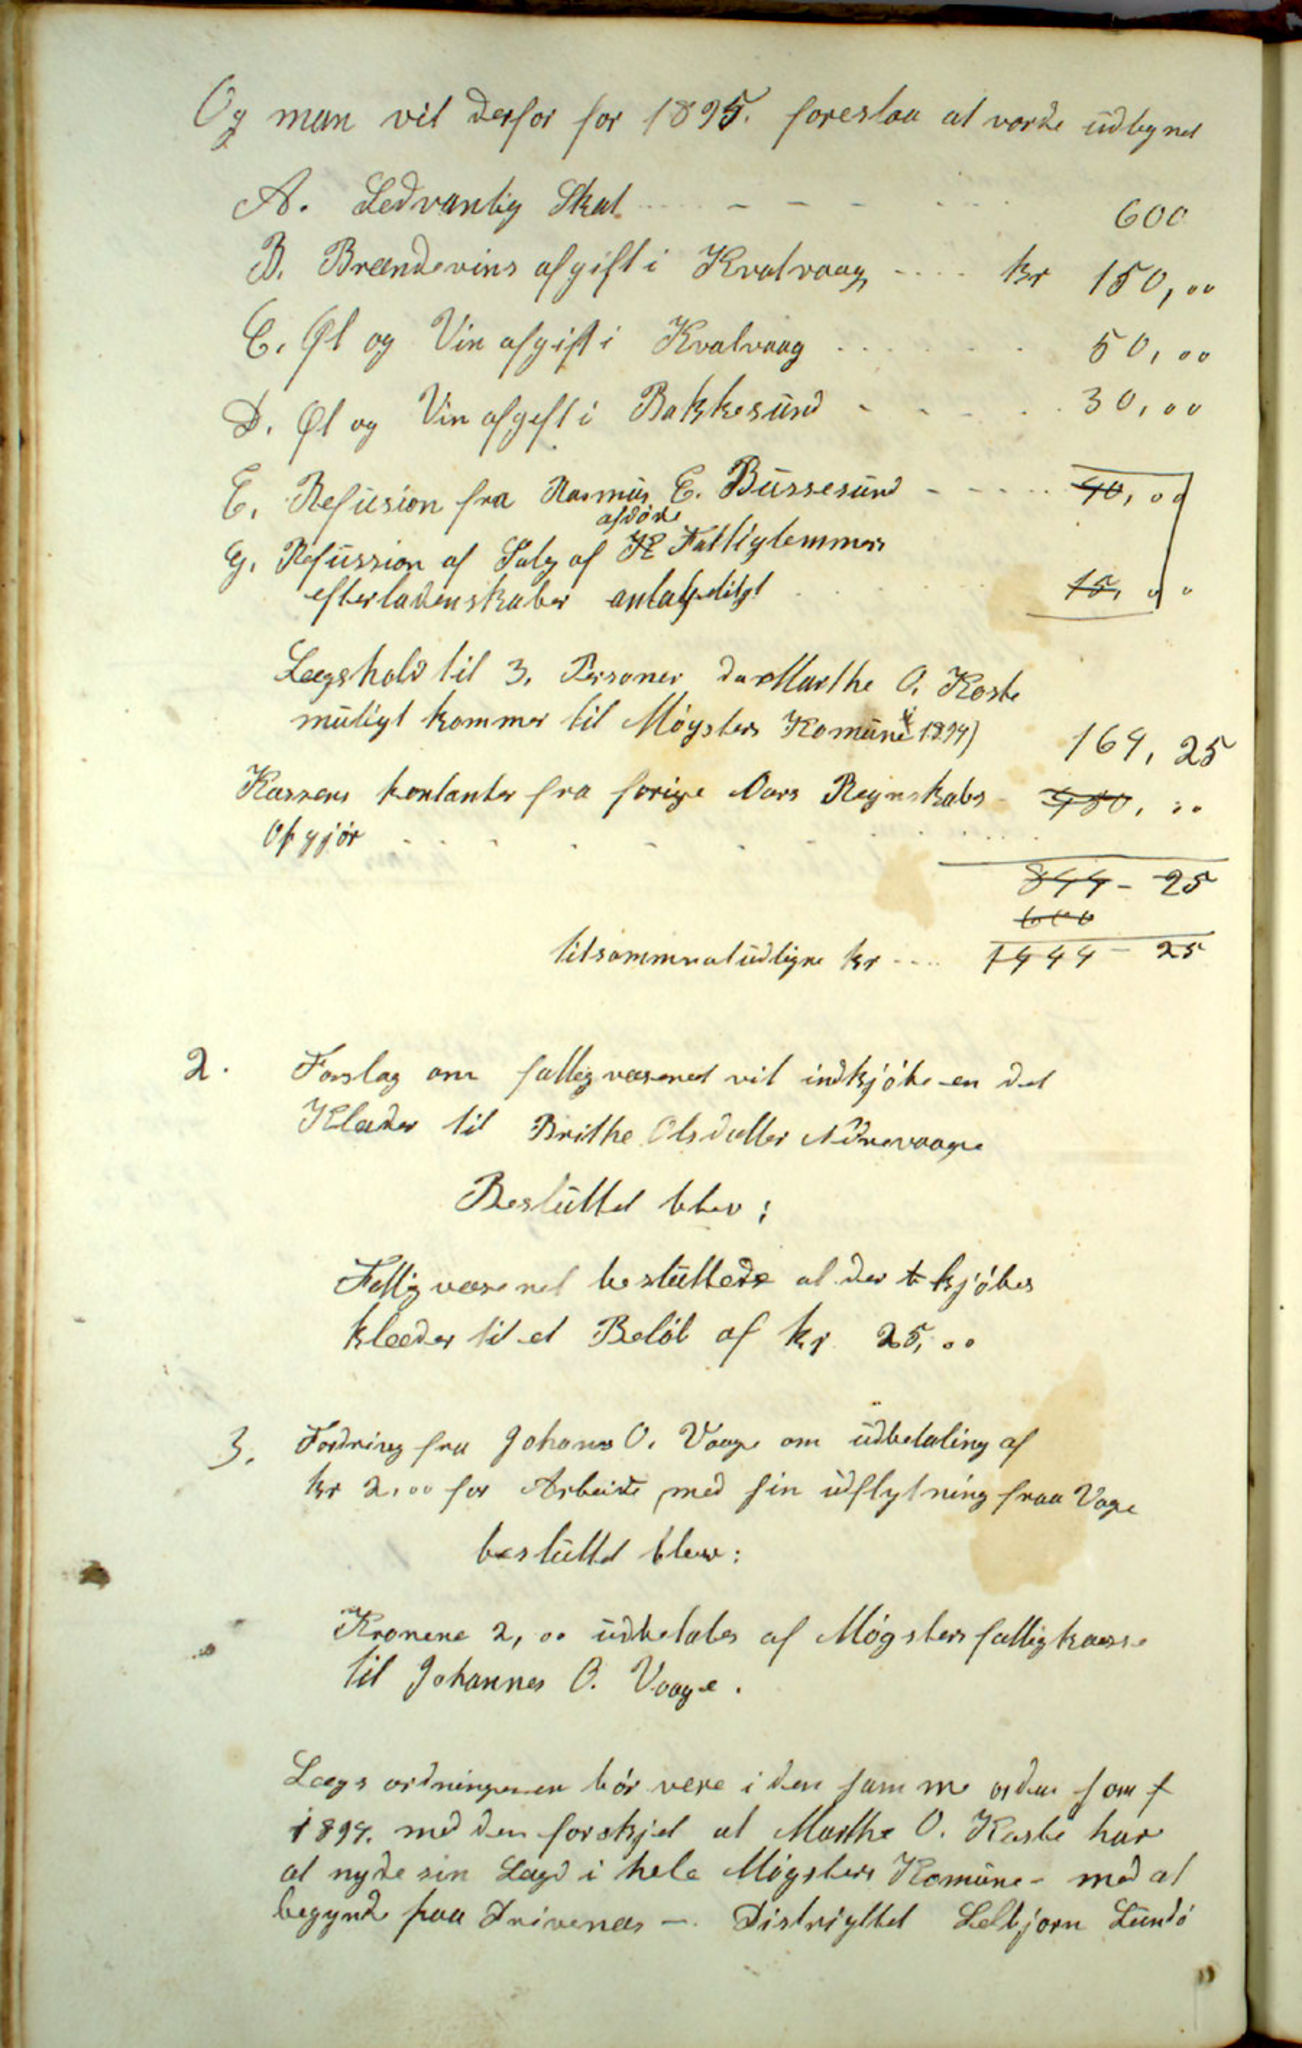 Og man vil derfor for 1895. foreslaa at vorde udlignet
A. Sedvanlig Skat - - - 600
B. Brændevins afgift i Kvalvaag - - - kr 150,00
C. Øl og Vin afgift i Kvalvaag . . . . 50,00
D. Øl og Vin afgift i Bakkesund - - - 30,00
E. Refusion fra Rasmus E. Bussesund - - - 40,00
afdøde
G. Refussion af Salg af Fattiglemmers
efterladenskaber . . . 15,00
Lægshold til 3. Personer da Marthe O. Koste
muligt kommer til Møgsters Komune i 1894) 164,25
Kassens kontanter fra forige Aars Regnskabs - 480,00
Opgjør . . . . . .
844 - 25
600
tilsammen at udligne kr .... 1444 - 25
2. Forslag om fattigvæsenet vil indkjøbe en del
Klæder til Brithe Olsdatter
Besluttet blev:
Fattigvæsenet besluttede at der kjøbes
klæder til et Beløb af kr 25,00
3. Fordring fra Johans O. Vaage om udbetaling af
kr 2,00 for Arbeide med sin udflytning fraa Vage
besluttet blew:
Kronene 2,00 udbetales af Møgsters fattigkasse
til Johannes O. Vaage.
Lægsordningenen bør være i den samme orden som f
1894. med den forskjel at Marthe O. Koste har
at nyde sin Lægd i hele Møgsters Komune - med at
begynde paa Drivenes -. Distrigttet Selbjørn Lundø